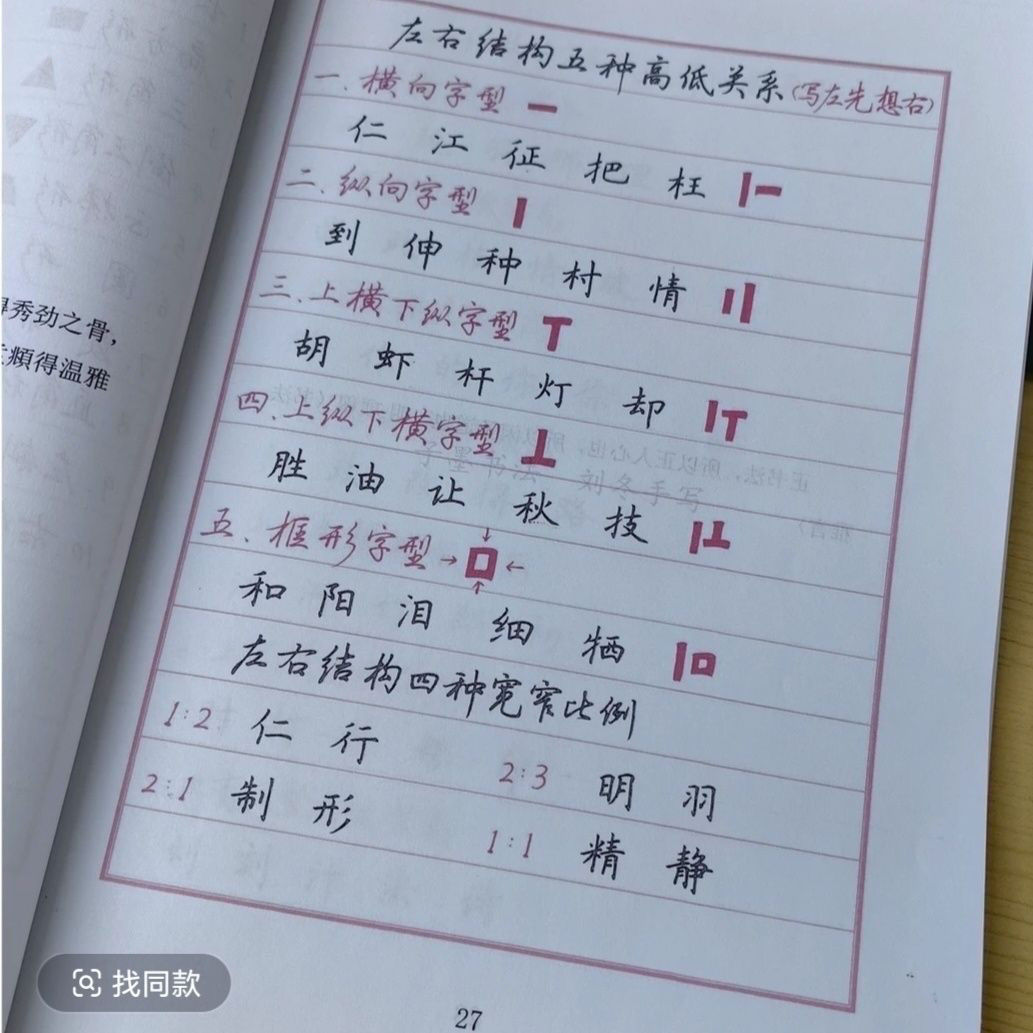 左右结构五种高低关系(写左先想右)
一、横向字型
仁 江 征 把 枉
二、纵向字型
到 伸 种 村 情
三、上横下纵字型
胡 虾 杆 灯 却
四、上纵下横字型
胜 油 让 秋 技
五、框形字型→ ←
和 阳 泪 细 牺
左右结构四种宽窄比例
1:2 仁 行
2:3 明 羽
2:1 制 形
1:1 精 静
27
秀劲之骨,
得温雅
字墨书法 刘冬手写
找同款